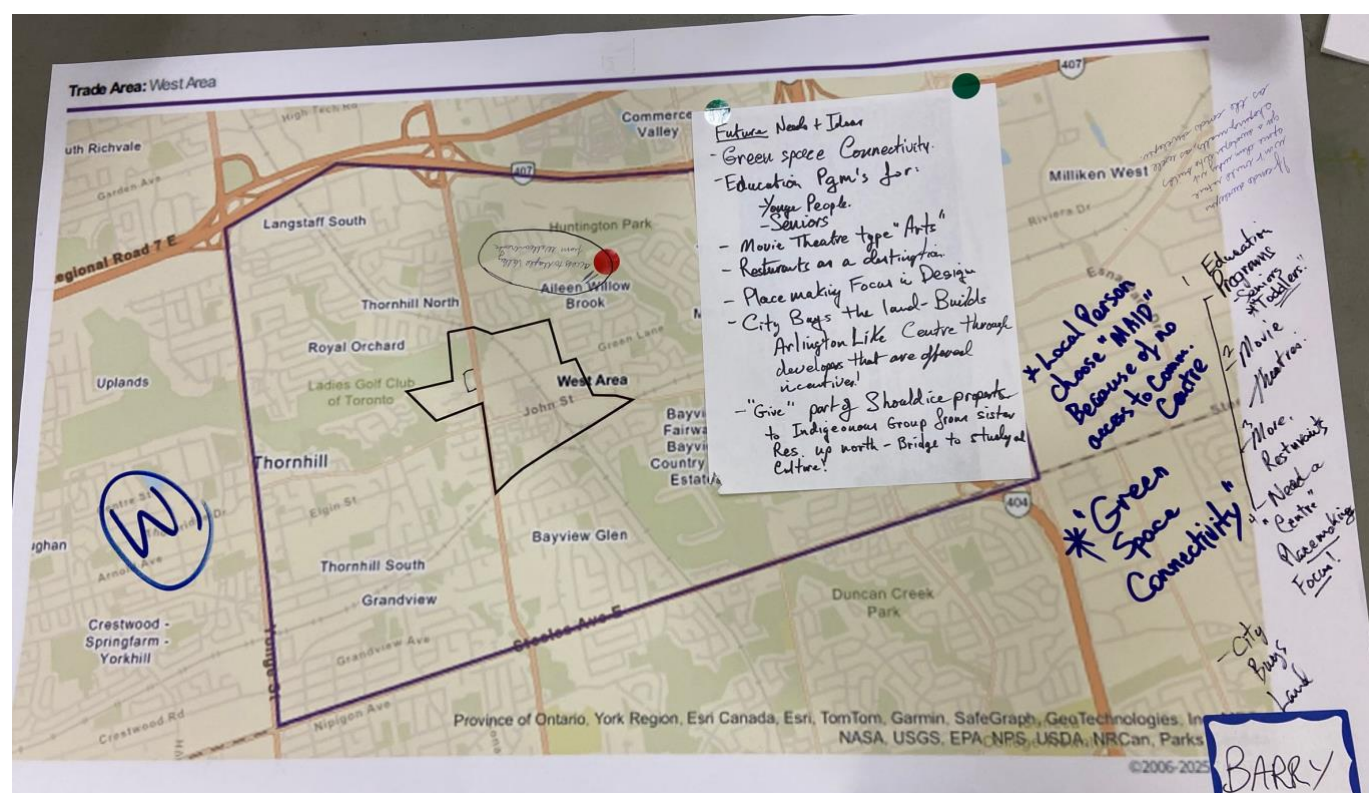 Trade Area: West Area
High Tech Rd
407
Commerce
Valley
uth Richvale
Garden Ave
407
Milliken West
Langstaff South
Huntington Park
Riviera Dr
egional Road 7 E
Aileen Willow
Brook
Esna
Thornhill North
Green Lane
Royal Orchard
Uplands
Ladies Golf Club
of Toronto
West Area
John St
Bayvi
Fairwa
Bayvi
Country
Estat
Thornhill
Elgin St
404
Bayview Glen
ughan
Arnold Ave
Thornhill South
Grandview
Duncan Creek
Park
Crestwood -
Springfarm -
Yorkhill
Grandview Ave
Steeles Ave E
Yonge St
Nipigon Ave
Crestwood Rd
Province of Ontario, York Region, Esri Canada, Esri, TomTom, Garmin, SafeGraph, GeoTechnologies, In
NASA, USGS, EPA, NPS, USDA, NRCan, Parks
©2006-2025
W
Future Needs + Ideas
- Green space Connectivity.
- Education Pgm's for:
- Younge People.
- Seniors
- Movie Theatre type "Arts"
- Resturants as a destination
- Place making Focus in Design
- City Buys the land - Builds
Arlington Like Centre through
developers that are offered
incentives!
- "Give" part of Shouldice property
to Indigeonous Group from sister
Res. up north - Bridge to study of
Culture!
* Local Person
choose "MAID"
Because of no
access to Comm.
Centre
* "Green
Space
Connectivity"
1 Education
Programs
Seniors
"Toddlers."
2 - Movie
theatres.
3 - More
Resturants
4 - Need a
"Centre"
Placemaking
Focus!
- City
Buys
Land
BARRY